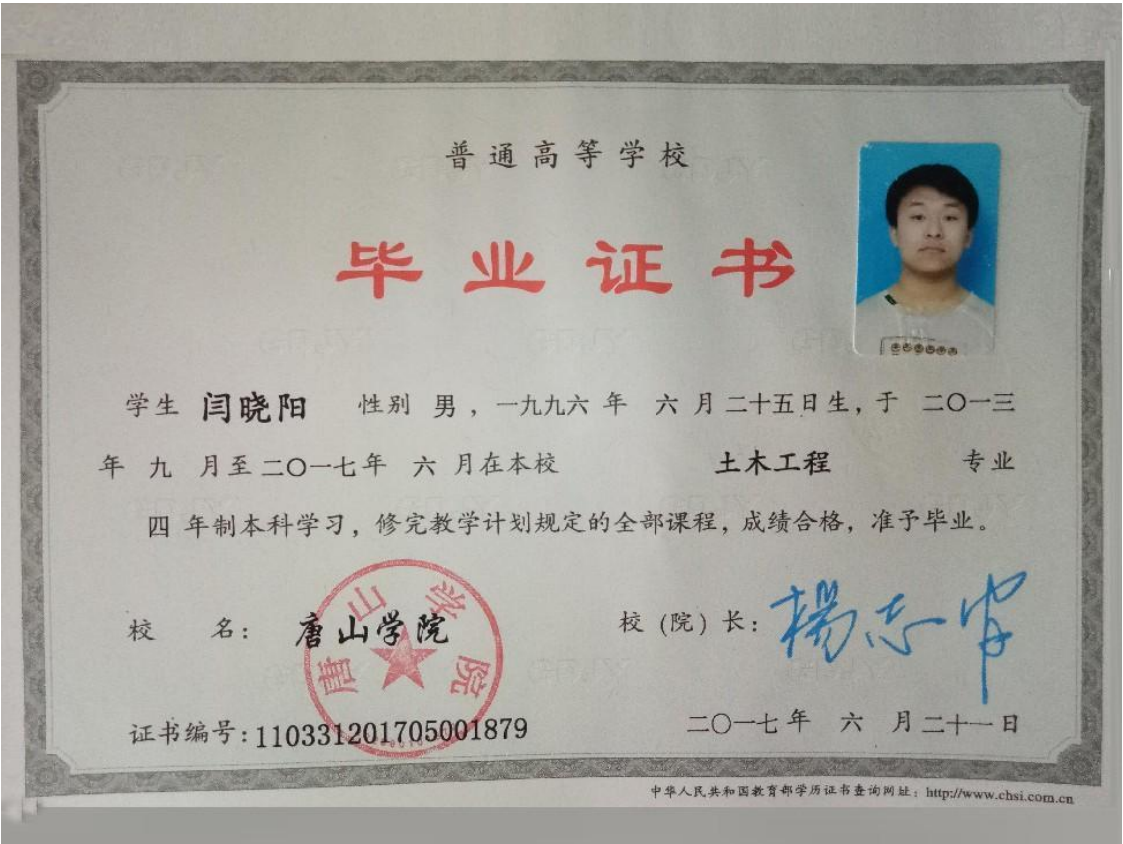 普通高等学校
毕业证书
学生 闫晓阳 性别 男，一九九六 年 六 月 二十五日生，于 二〇一三
年 九 月至 二〇一七年 六 月在本校 土木工程 专业
四 年制本科学习，修完教学计划规定的全部课程，成绩合格，准予毕业。
校 名： 唐山学院
唐山学院
校（院）长：
证书编号：110331201705001879
二〇一七 年 六 月 二十一 日
中华人民共和国教育部学历证书查询网址：http://www.chsi.com.cn